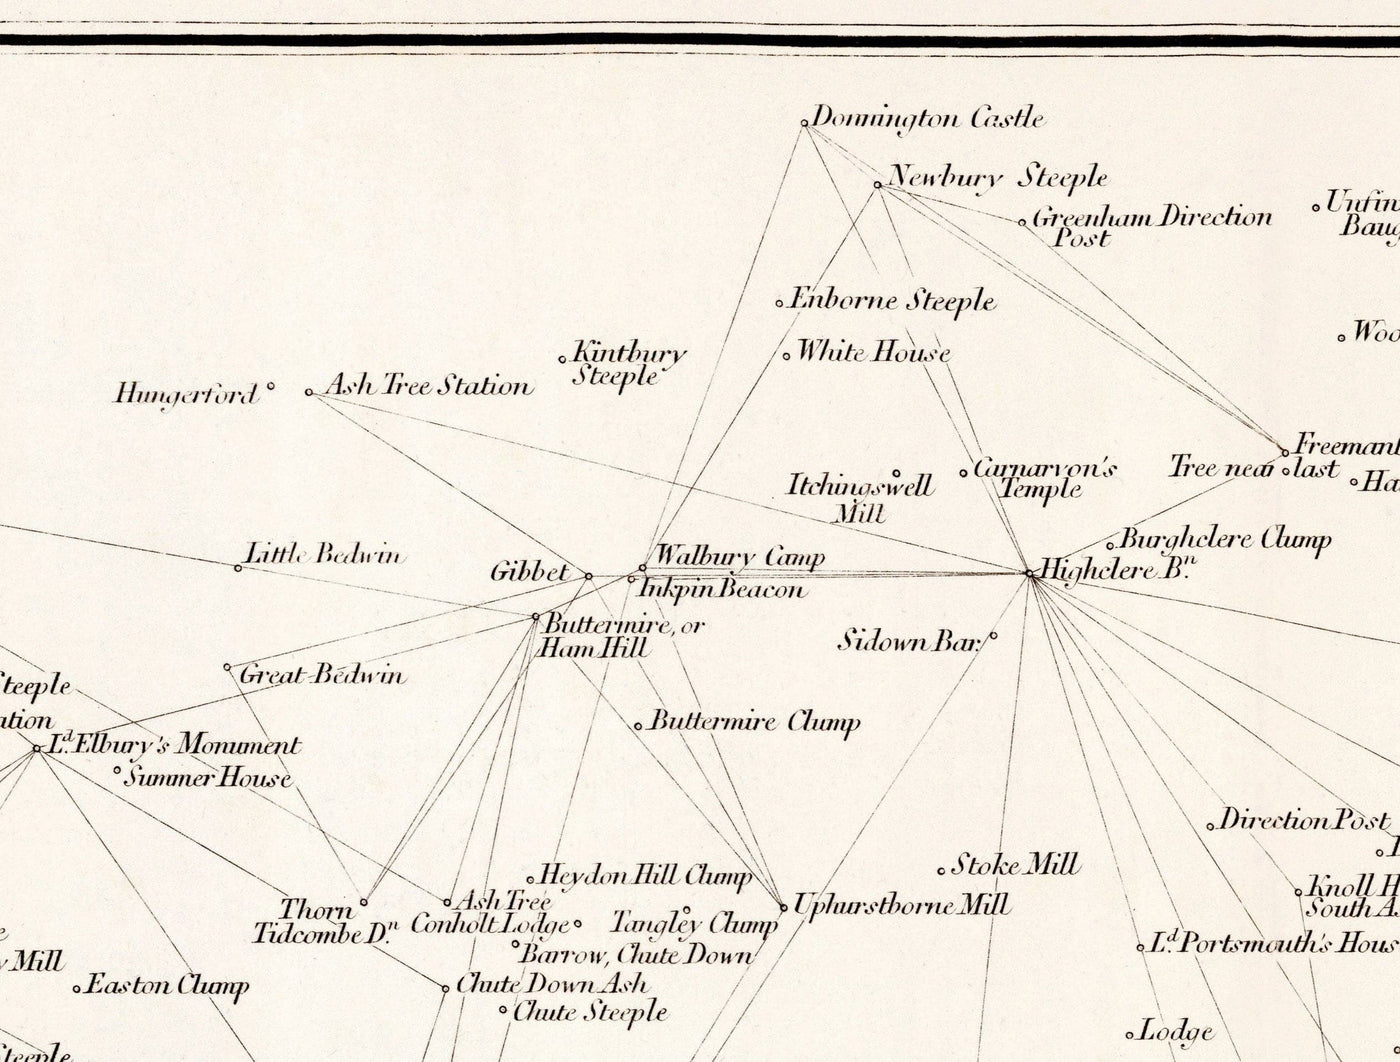 Donnington Castle
Newbury Steeple
Greenham Direction
Post
Enborne Steeple
White House
Kintbury
Steeple
Hungerford
Ash Tree Station
Itchingswell
Mill
Carnarvon's
Temple
Tree near last
Burghclere Clump
Little Bedwin
Gibbet
Walbury Camp
Inkpin Beacon
Highclere Bn.
Buttermire, or
Ham Hill
Sidown Bar.
Great Bedwin
Steeple
Buttermire Clump
Ld. Elbury's Monument
Summer House
Direction Post
Heydon Hill Clump
Stoke Mill
Thorn
Tidcombe Dn.
Ash Tree
Conholt Lodge
Tangley Clump
Uphurstborne Mill
Knoll H
South A
Barrow, Chute Down
Ld. Portsmouth's Hous
Mill
Easton Clump
Chute Down Ash
Chute Steeple
Lodge
Steeple